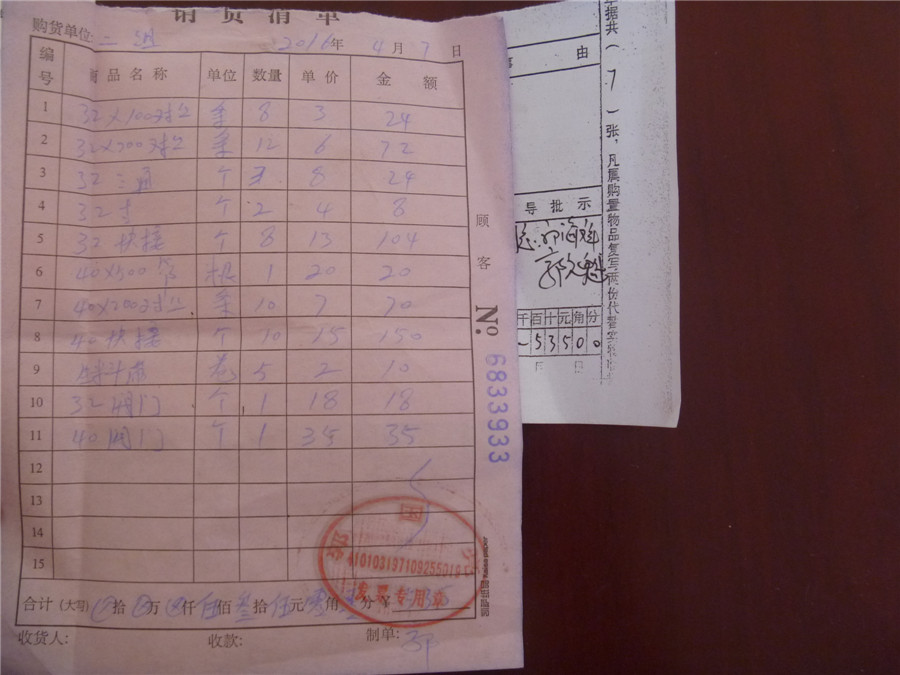 销货清单
购货单位: 二组 2016年 4月 7日
编号 商品名称 单位 数量 单价 金额
1 32×100对丝 条 8 3 24
2 32×200对丝 条 12 6 72
3 32三通 个 3 8 24
4 32 个 2 4 8
5 32快接 个 8 13 104
6 40×500 根 1 20 20
7 40×200对丝 条 10 7 70
8 40快接 个 10 15 150
9 生料带 卷 5 2 10
10 32阀门 个 1 18 18
11 40阀门 个 1 35 35
12
13
14
15
合计 (大写) 拾 万 仟 伍佰 叁拾 伍元 零角 分
收货人: 收款: 制单: 郭
顾客
No 6833933
国
410103197109255019
发票专用章
由
导批示
千百十元角分
53500
月 日
单据共(7)张,凡属购置物品复写两份代